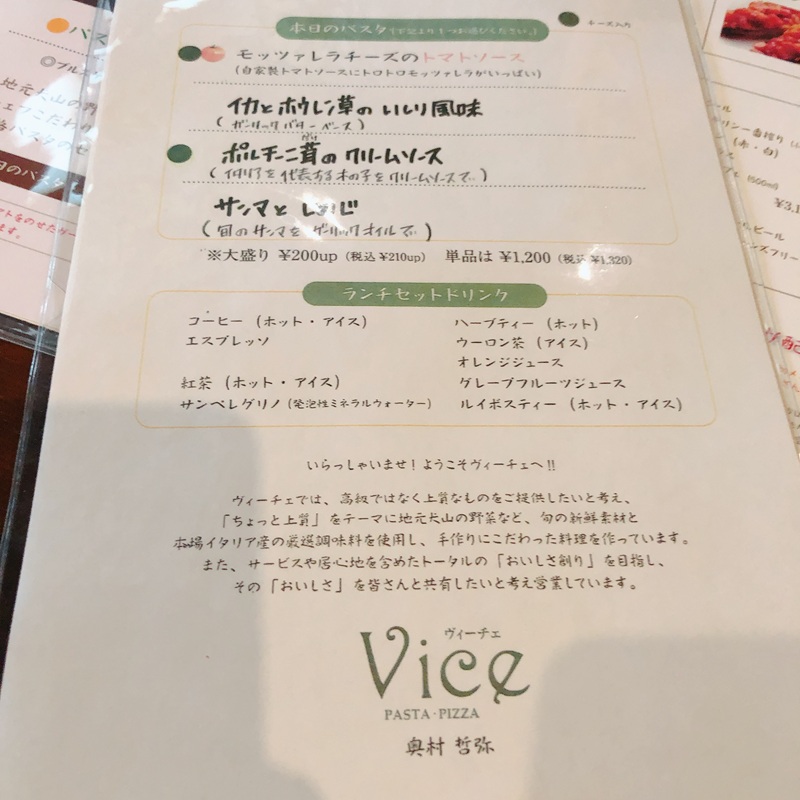 本日のパスタ(下記より1つお選びください。)
チーズ入り
モッツァレラチーズのトマトソース
(自家製トマトソースにトロトロモッツァレラがいっぱい)
イカとホウレン草の いしり風味
(ガーリックバターベース)
ポルチーニ茸の クリームソース
(イタリアを代表するキの子をクリームソースで)
サンマと しめじ
(旬のサンマをガーリックオイルで)
※大盛り ¥200up (税込 ¥210up) 単品は ¥1,200 (税込 ¥1,320)
ランチセットドリンク
コーヒー (ホット・アイス)
エスプレッソ
紅茶 (ホット・アイス)
サンペレグリノ (発泡性ミネラルウォーター)
ハーブティー (ホット)
ウーロン茶 (アイス)
オレンジジュース
グレープフルーツジュース
ルイボスティー (ホット・アイス)
いらっしゃいませ!ようこそヴィーチェへ!!
ヴィーチェでは、高級ではなく上質なものをご提供したいと考え、
「ちょっと上質」をテーマに地元犬山の野菜など、旬の新鮮素材と
本場イタリア産の厳選調味料を使用し、手作りにこだわった料理を作っています。
また、サービスや居心地を含めたトータルの「おいしさ創り」を目指し、
その「おいしさ」を皆さんと共有したいと考え営業しています。
ヴィーチェ
Vice
PASTA・PIZZA
奥村 哲弥